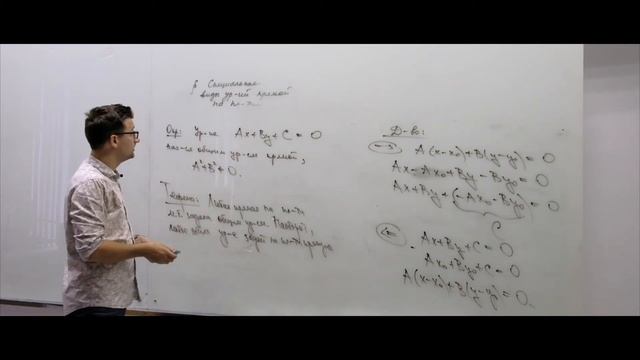 § Специальные
виды ур-ий прямой
на пл-ти.
Опр: Ур-ие Ax+By+C=0
наз-ся общим ур-ем прямой,
A²+B²≠0.
Теорема: Любая прямая на пл-ти
м.б. задана общим ур-ем. Наоборот,
любое ур-е задаёт на пл-ти прямую
Д-во:
A(x-x₀)+B(y-y₀)=0
Ax-Ax₀+By-By₀=0
Ax+By+(-Ax₀-By₀)=0
C
Ax+By+C=0
Ax₀+By₀+C=0
A(x-x₀)+B(y-y₀)=0.